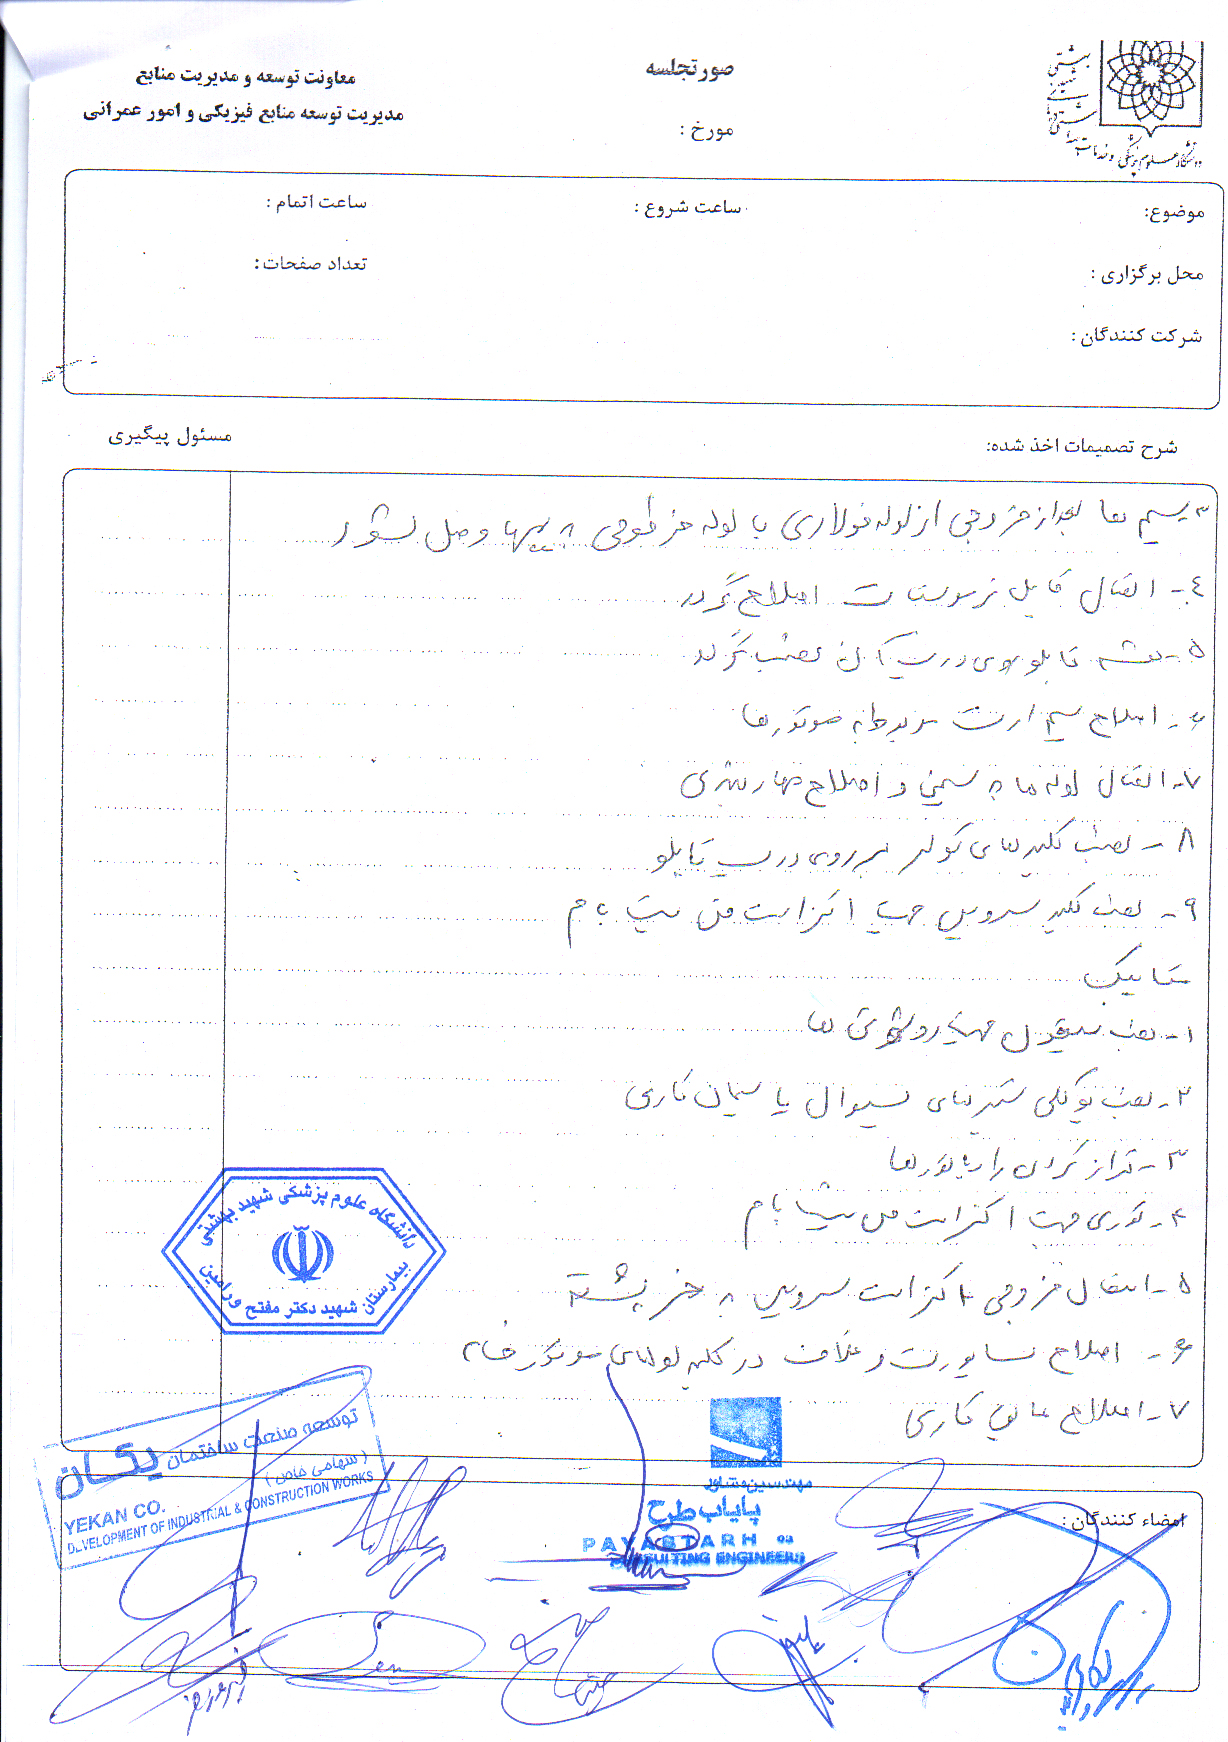 دانشگاه علوم پزشکی و خدمات بهداشتی
شهید بهشتی
صورتجلسه
مورخ :
معاونت توسعه و مدیریت منابع
مدیریت توسعه منابع فیزیکی و امور عمرانی
موضوع:
ساعت شروع :
ساعت اتمام :
محل برگزاری :
تعداد صفحات :
شرکت کنندگان :
شرح تصمیمات اخذ شده:
مسئول پیگیری
۳- سیم ها بعد از خروجی از لوله فولادی با لوله خرطومی به پمپها وصل شود
۴- اتصال کابل ترموستات اصلاح گردد
۵- نقشه تابلو روی درب آن نصب گردد
۶- اصلاح سیم ارت موتورها
۷- اتصال لوله ها به سینی و اصلاح مهاربندی
۸- نصب کلیدهای کولر بر روی درب تابلو
۹- نصب کلید سرویس جهت اگزاست فن پشت بام
مکانیک
۱- نصب سیفون جهت روشویی ها
۲- نصب توکلی شیرهای یا سیمان کاری
۳- تراز کردن رادیاتورها
۴- توری جهت اگزاست فن پشت بام
۵- انتقال خروجی اگزاست سرویس به خرپشته
۶- اصلاح ساپورت و غلاف در کلیه لوله‌های موتورخانه
۷- اصلاح عایق کاری
دانشگاه علوم پزشکی شهید بهشتی
بیمارستان شهید دکتر مفتح ورامین
توسعه صنعت ساختمان یکان
(سهامی خاص)
YEKAN CO.
DEVELOPMENT OF INDUSTRIAL & CONSTRUCTION WORKS
مهندسین مشاور
پایاب طرح
PAYABTARH co
CONSULTING ENGINEERS
امضاء کنندگان :